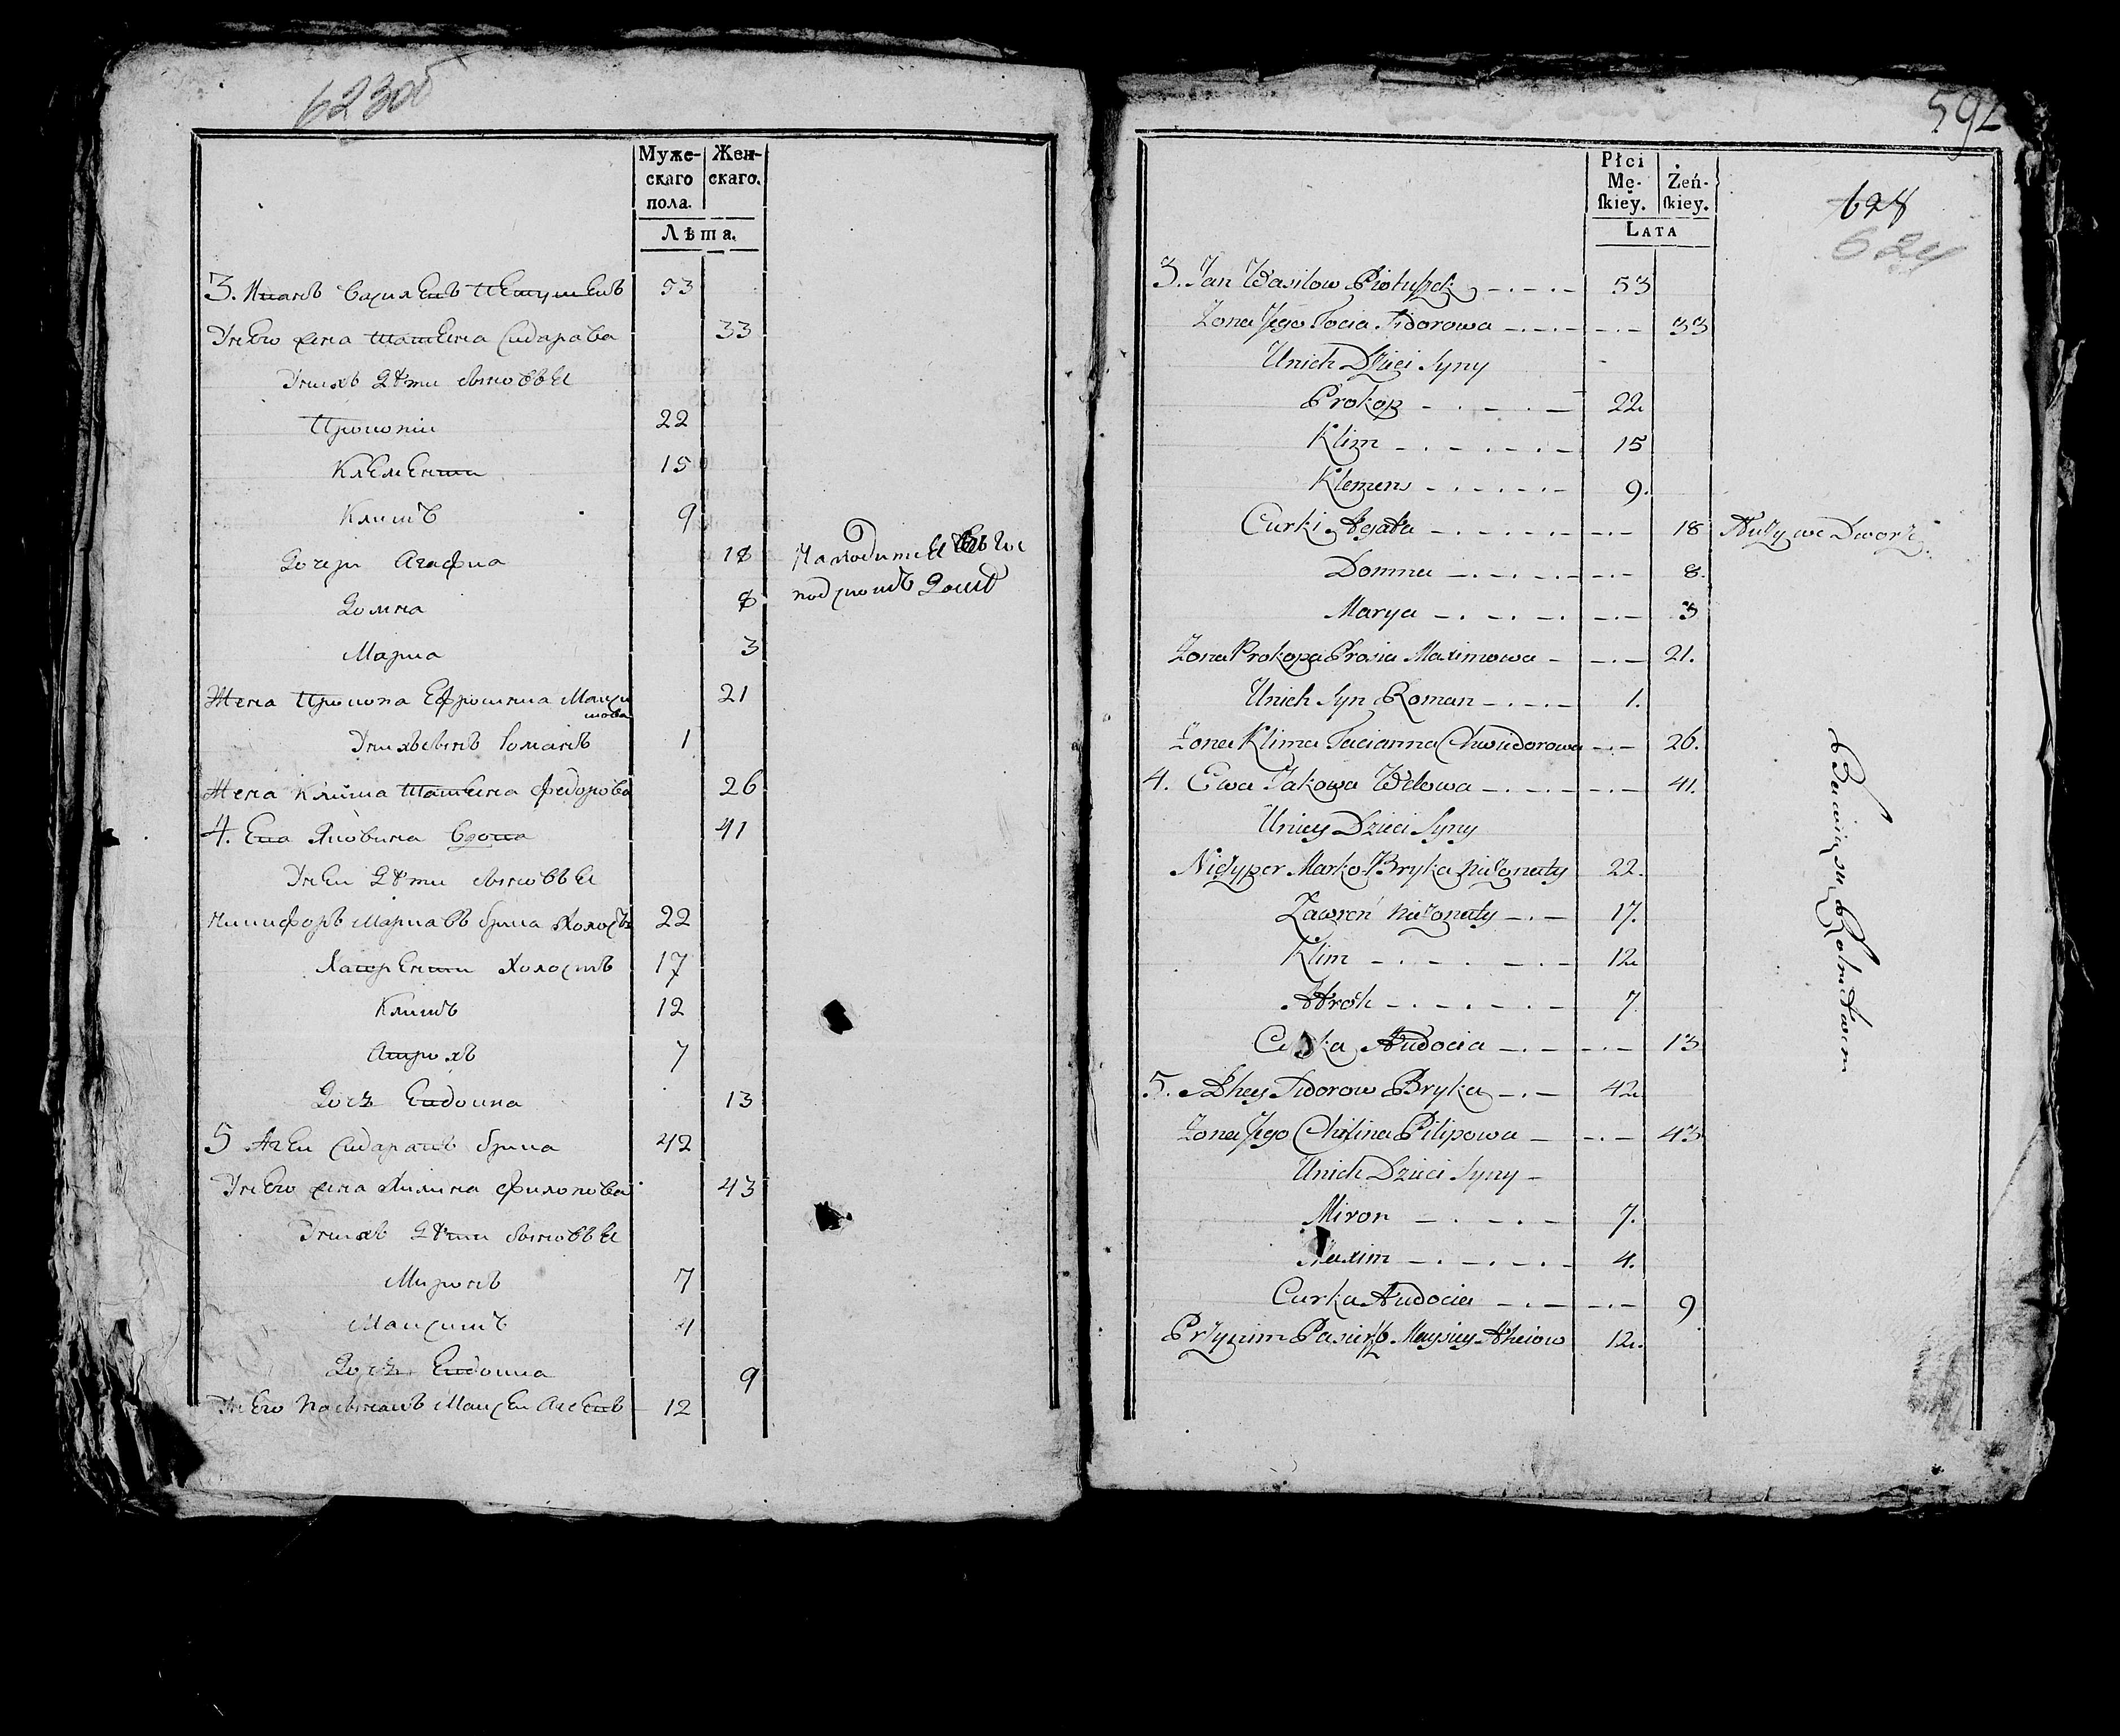 623об
Муже-
скаго
пола.
Жен-
скаго.
Лѣта.
3. Иванъ Василевъ Петушекъ 53
У него жена Татьяна Сидарова 33
У нихъ дѣти сыновья
Прокопій 22
Клементи 15
Климъ 9
Дочери Агафиа 18
Домна 8
Мариа 3
Жена Прокопа Ефросиниа Макси
мова 21
У нихъ сынъ Романъ 1
Жена Клима Татьяна Федорова 26
4. Ева Яковина вдова 41
У неи дѣти сыновья
Никифоръ Маркавъ брика холостъ 22
Лаврентии холостъ 17
Климъ 12
Атрохъ 7
Дочь Евдокиа 13
5 Агеи Сидаравъ брика 42
У него жена Филипова 43
У нихъ дѣти сыновья
Миронъ 7
Максимъ 4
Дочь Евдокиа 9
У него Пасынакъ Максеи Агеевъ 12
592
628
624
Płci
Mę-
ſkiey.
Żeń-
ſkiey.
LATA
3. Jan Wasilow Piotuszek 53
Zona Jego Tacia Sidorowa 33
Unich Dzieci Syny
Prokop 22
Klim 15
Klemens 9.
Curki Agata 18 we Dworze
Domna 8.
Marya 3
Zona Prokopa Prosia Maximowa 21.
Unich Syn Roman 1.
Zona Klima Tacianna Chwiedorowa 26.
4. Ewa Jakowa Wdowa 41.
Uniey Dzieci Syny
Marko Bryka niezonaty 22.
Ławren niezonaty 17.
Klim 12
Atroh 7
Curka Audocia 13
5. Ahey Sidorow Bryka 42
Zona Jego Pilipowa 43
Unich Dzieci Syny
Miron 7.
Maxim 4.
Curka Audocia 9
Przynim Pasierb Maysiey Aheiow 12.